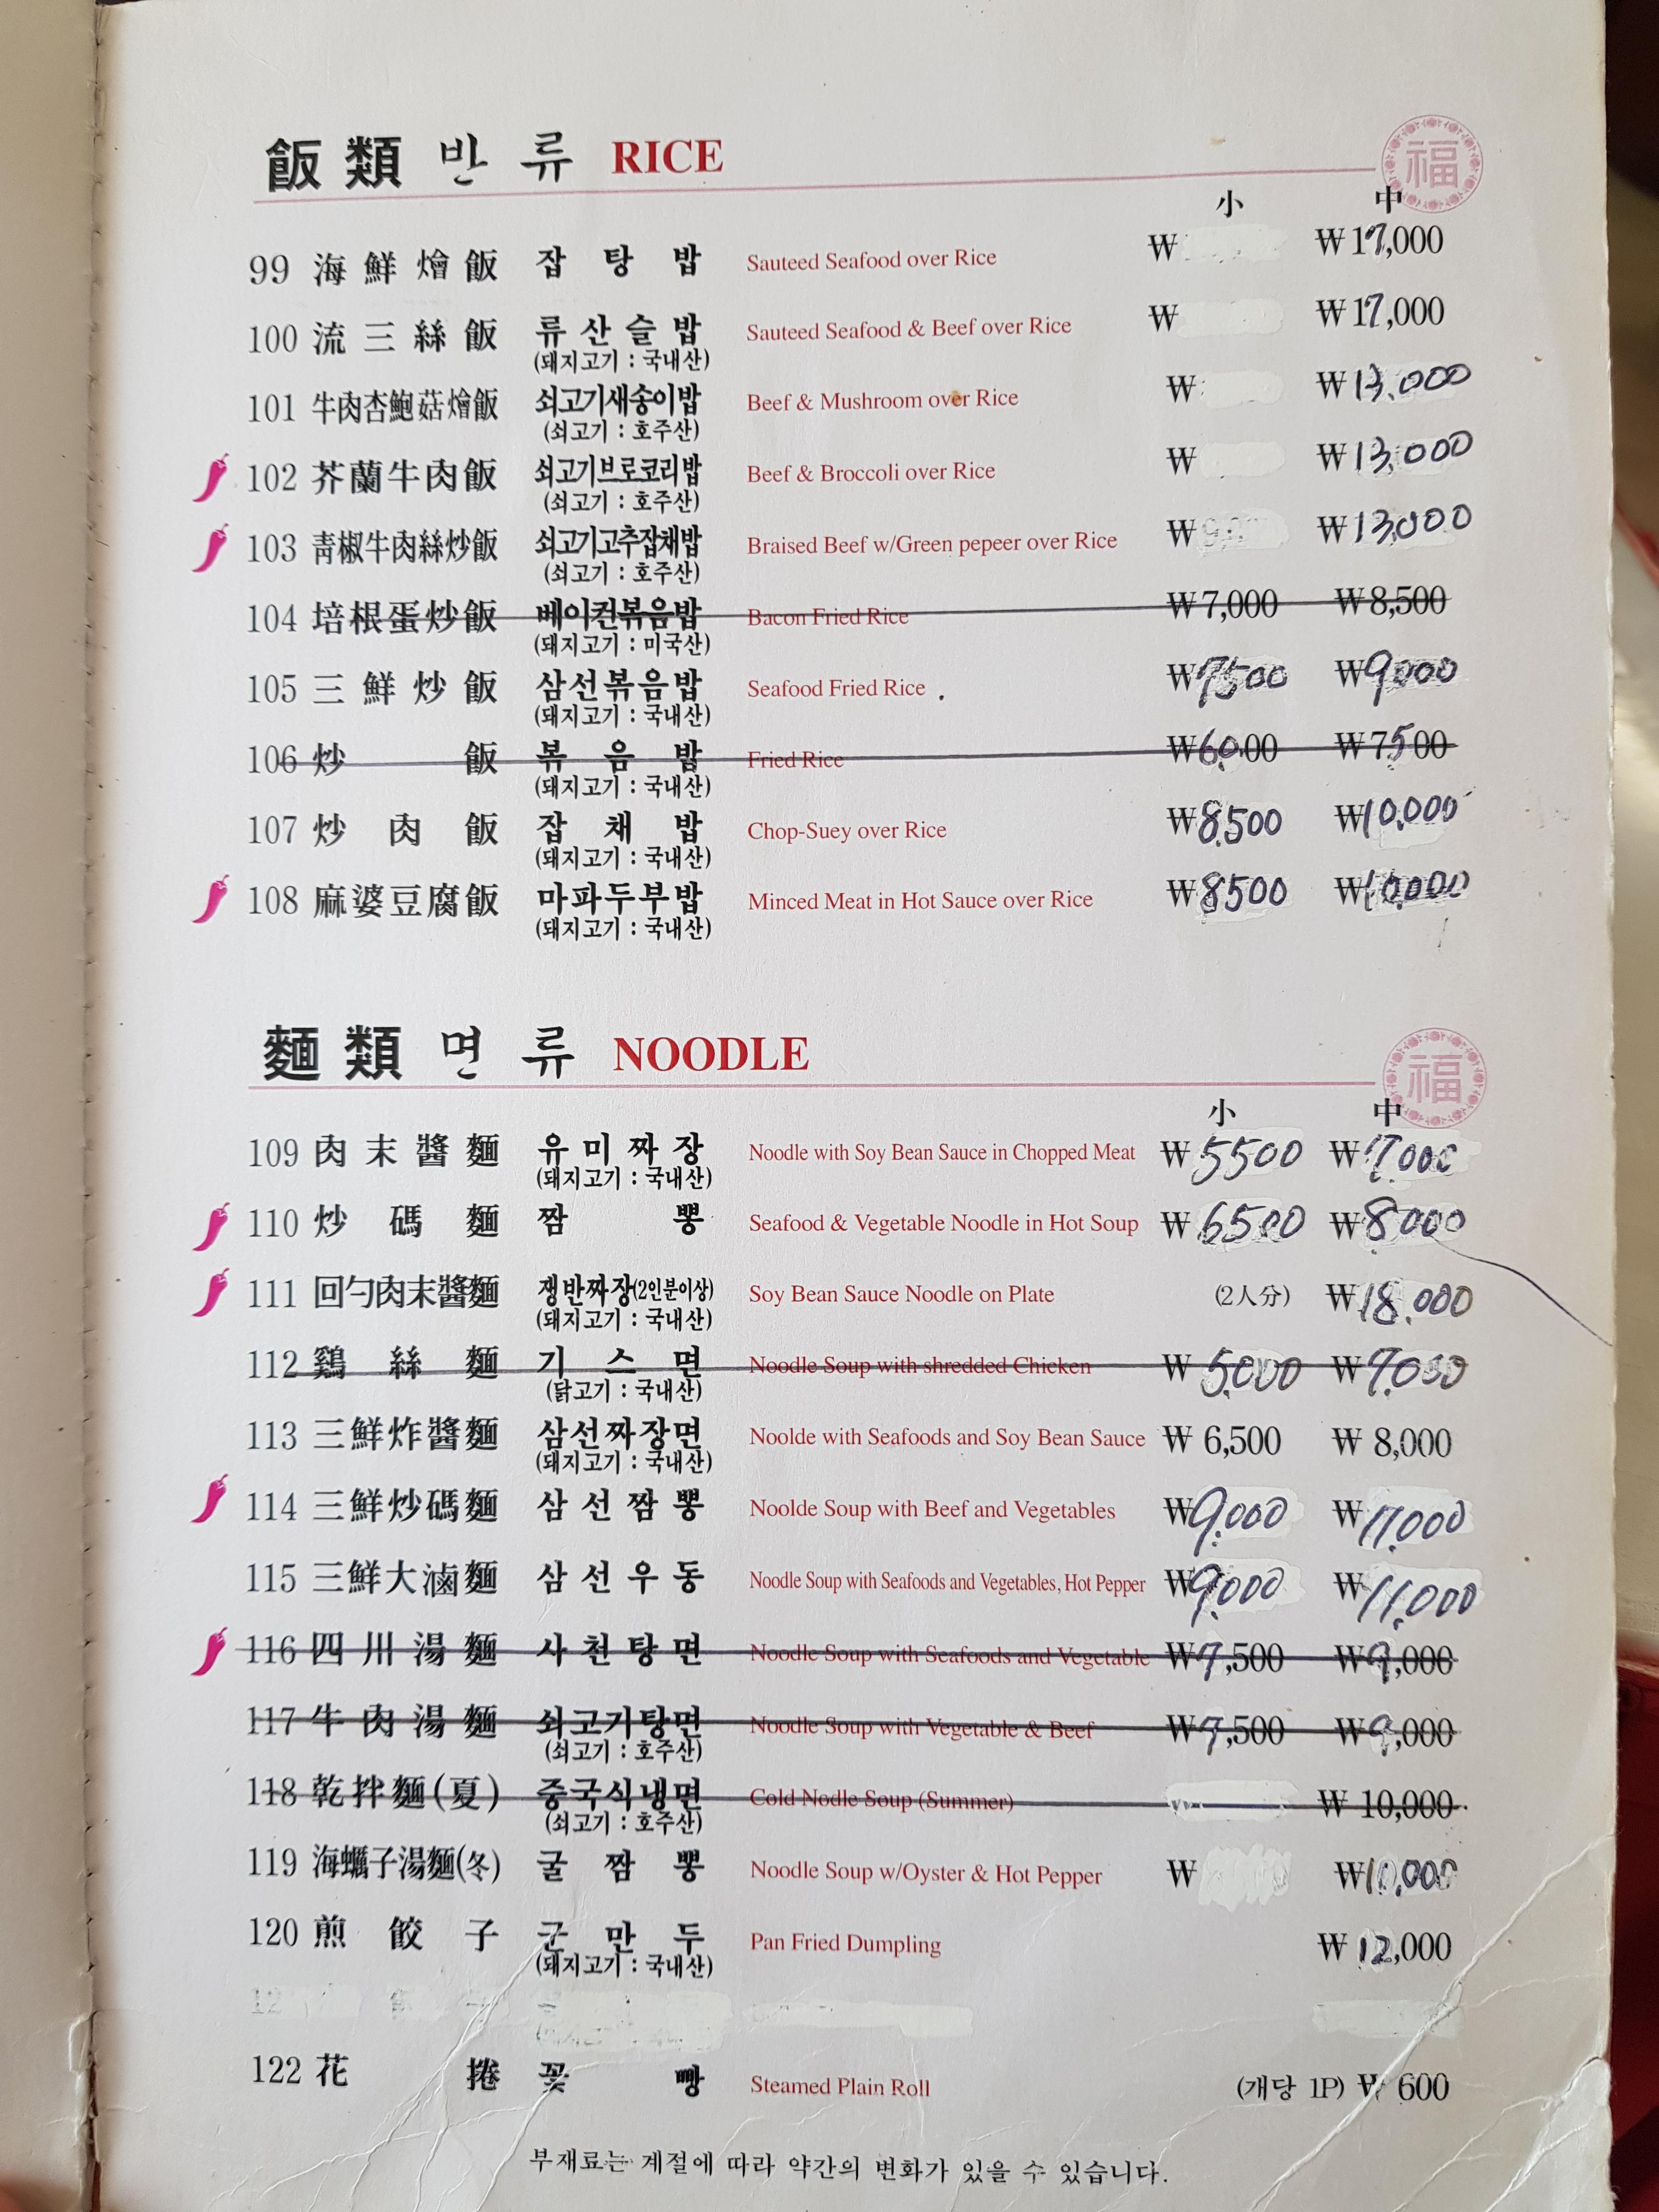 飯類 반류 RICE 福
小 中
99 海鮮燴飯 잡탕밥 Sauteed Seafood over Rice ₩ ₩17,000
100 流三絲飯 류산슬밥 Sauteed Seafood & Beef over Rice ₩ ₩17,000
(돼지고기 : 국내산)
101 牛肉杏鮑菇燴飯 쇠고기새송이밥 Beef & Mushroom over Rice ₩ ₩13,000
(쇠고기 : 호주산)
102 芥蘭牛肉飯 쇠고기브로코리밥 Beef & Broccoli over Rice ₩ ₩13,000
(쇠고기 : 호주산)
103 靑椒牛肉絲炒飯 쇠고기고추잡채밥 Braised Beef w/Green pepeer over Rice ₩ ₩13,000
(쇠고기 : 호주산)
104 培根蛋炒飯 베이컨볶음밥 Bacon Fried Rice ₩7,000 ₩8,500
(돼지고기 : 미국산)
105 三鮮炒飯 삼선볶음밥 Seafood Fried Rice ₩7500 ₩9,000
(돼지고기 : 국내산)
106 炒飯 볶음밥 Fried Rice ₩6,000 ₩7500
(돼지고기 : 국내산)
107 炒肉飯 잡채밥 Chop-Suey over Rice ₩8,500 ₩10,000
(돼지고기 : 국내산)
108 麻婆豆腐飯 마파두부밥 Minced Meat in Hot Sauce over Rice ₩8500 ₩10,000
(돼지고기 : 국내산)
麵類 면류 NOODLE 福
小 中
109 肉末醬麵 유미짜장 Noodle with Soy Bean Sauce in Chopped Meat ₩5500 ₩7000
(돼지고기 : 국내산)
110 炒碼麵 짬뽕 Seafood & Vegetable Noodle in Hot Soup ₩6500 ₩8000
111 回勺肉末醬麵 쟁반짜장(2인분이상) Soy Bean Sauce Noodle on Plate (2人分) ₩18,000
(돼지고기 : 국내산)
112 鷄絲麵 기스면 Noodle Soup with shredded Chicken ₩5,000 ₩7,000
(닭고기 : 국내산)
113 三鮮炸醬麵 삼선짜장면 Noolde with Seafoods and Soy Bean Sauce ₩6,500 ₩8,000
(돼지고기 : 국내산)
114 三鮮炒碼麵 삼선짬뽕 Noolde Soup with Beef and Vegetables ₩9,000 ₩11,000
115 三鮮大滷麵 삼선우동 Noodle Soup with Seafoods and Vegetables, Hot Pepper ₩9,000 ₩11,000
116 四川湯麵 사천탕면 Noodle Soup with Seafoods and Vegetable ₩7,500 ₩9,000
117 牛肉湯麵 쇠고기탕면 Noodle Soup with Vegetable & Beef ₩7,500 ₩9,000
(쇠고기 : 호주산)
118 乾拌麵(夏) 중국식냉면 Cold Nodle Soup (Summer) ₩10,000
(쇠고기 : 호주산)
119 海蠣子湯麵(冬) 굴짬뽕 Noodle Soup w/Oyster & Hot Pepper ₩ ₩10,000
120 煎餃子 군만두 Pan Fried Dumpling ₩12,000
(돼지고기 : 국내산)
122 花捲 꽃빵 Steamed Plain Roll (개당 1P) ₩600
부재료는 계절에 따라 약간의 변화가 있을 수 있습니다.